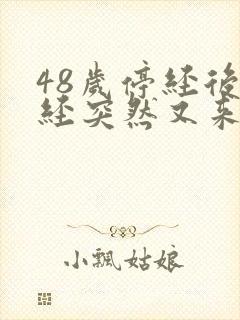 48歲停经後
经突然又来
小飄姑娘